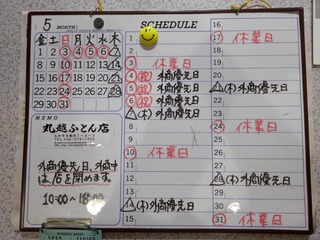 5 MONTH
金 土 日 月 火 水 木
1 2 3 4 5 6 7
8 9 10 11 12 13 14
15 16 17 18 19 20 21
22 23 24 25 26 27 28
29 30 31
MEMO
丸越ふとん店
外商優先日、外商中
は店を閉めます。
10:00~18:00
SCHEDULE
1
2
3 休業日
4 (祝) 外商優先日
5 (祝) 外商優先日
6 (祝) 外商優先日
7 (木) 外商優先日
8
9
10 休業日
11
12
13
14 (木) 外商優先日
15
16
17 休業日
18
19
20
21 (木) 外商優先日
22
23
24 休業日
25
26
27
28 (木) 外商優先日
29
30
31 休業日
OPEN